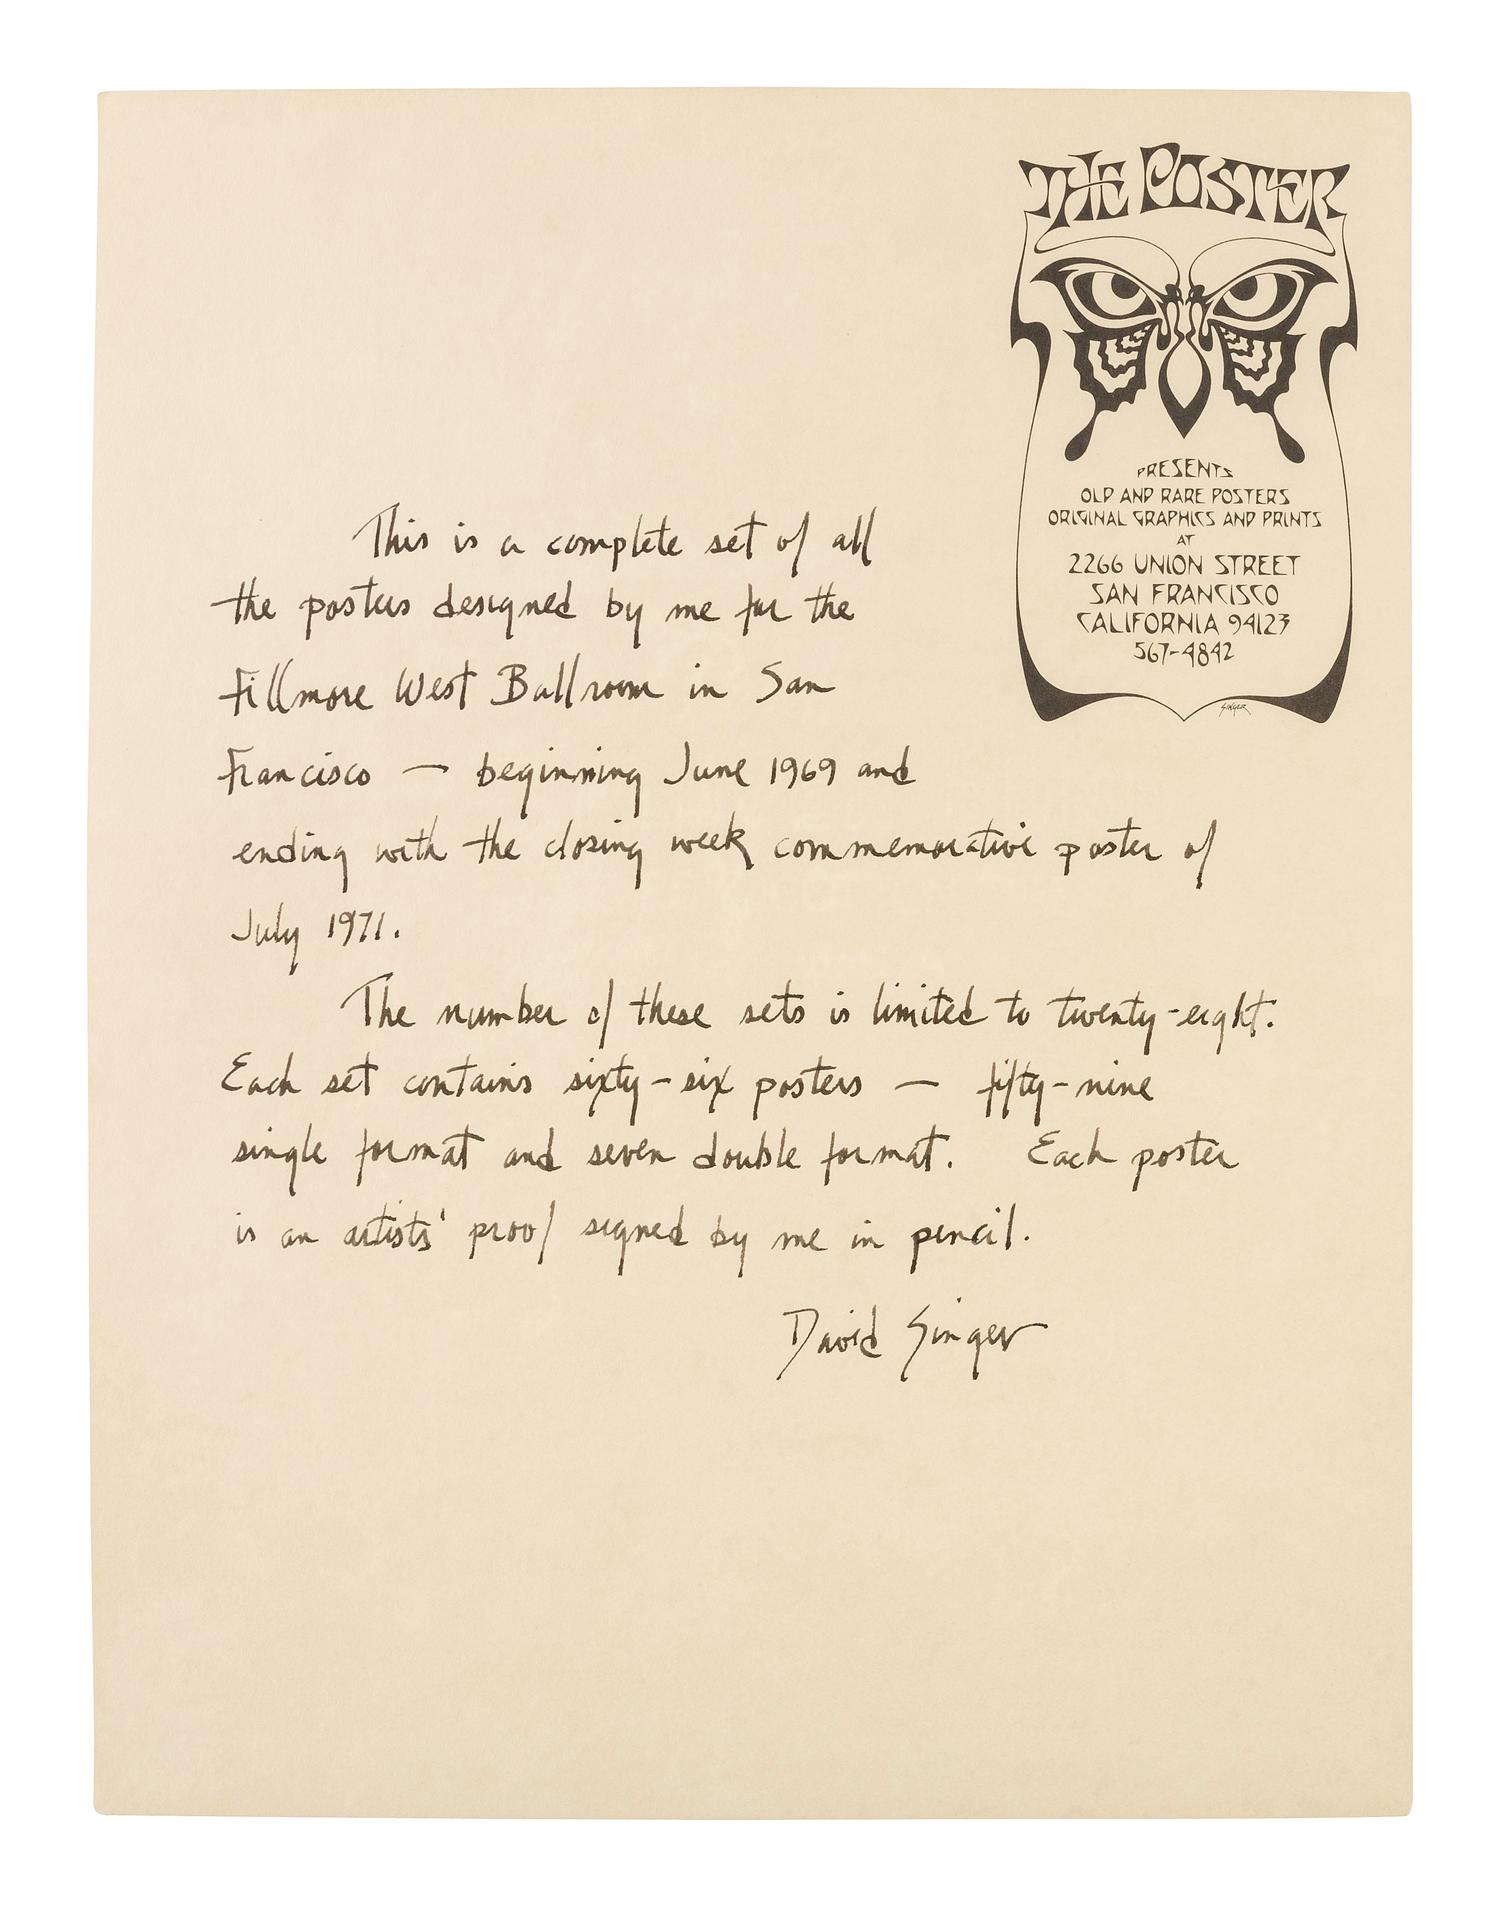 THE POSTER
PRESENTS
OLD AND RARE POSTERS
ORIGINAL GRAPHICS AND PRINTS
AT
2266 UNION STREET
SAN FRANCISCO
CALIFORNIA 94123
567-4842
SINGER
This is a complete set of all
the posters designed by me for the
Fillmore West Ballroom in San
Francisco — beginning June 1969 and
ending with the closing week commemorative poster of
July 1971.
The number of these sets is limited to twenty-eight.
Each set contains sixty-six posters — fifty-nine
single format and seven double format. Each poster
is an artists' proof signed by me in pencil.
David Singer